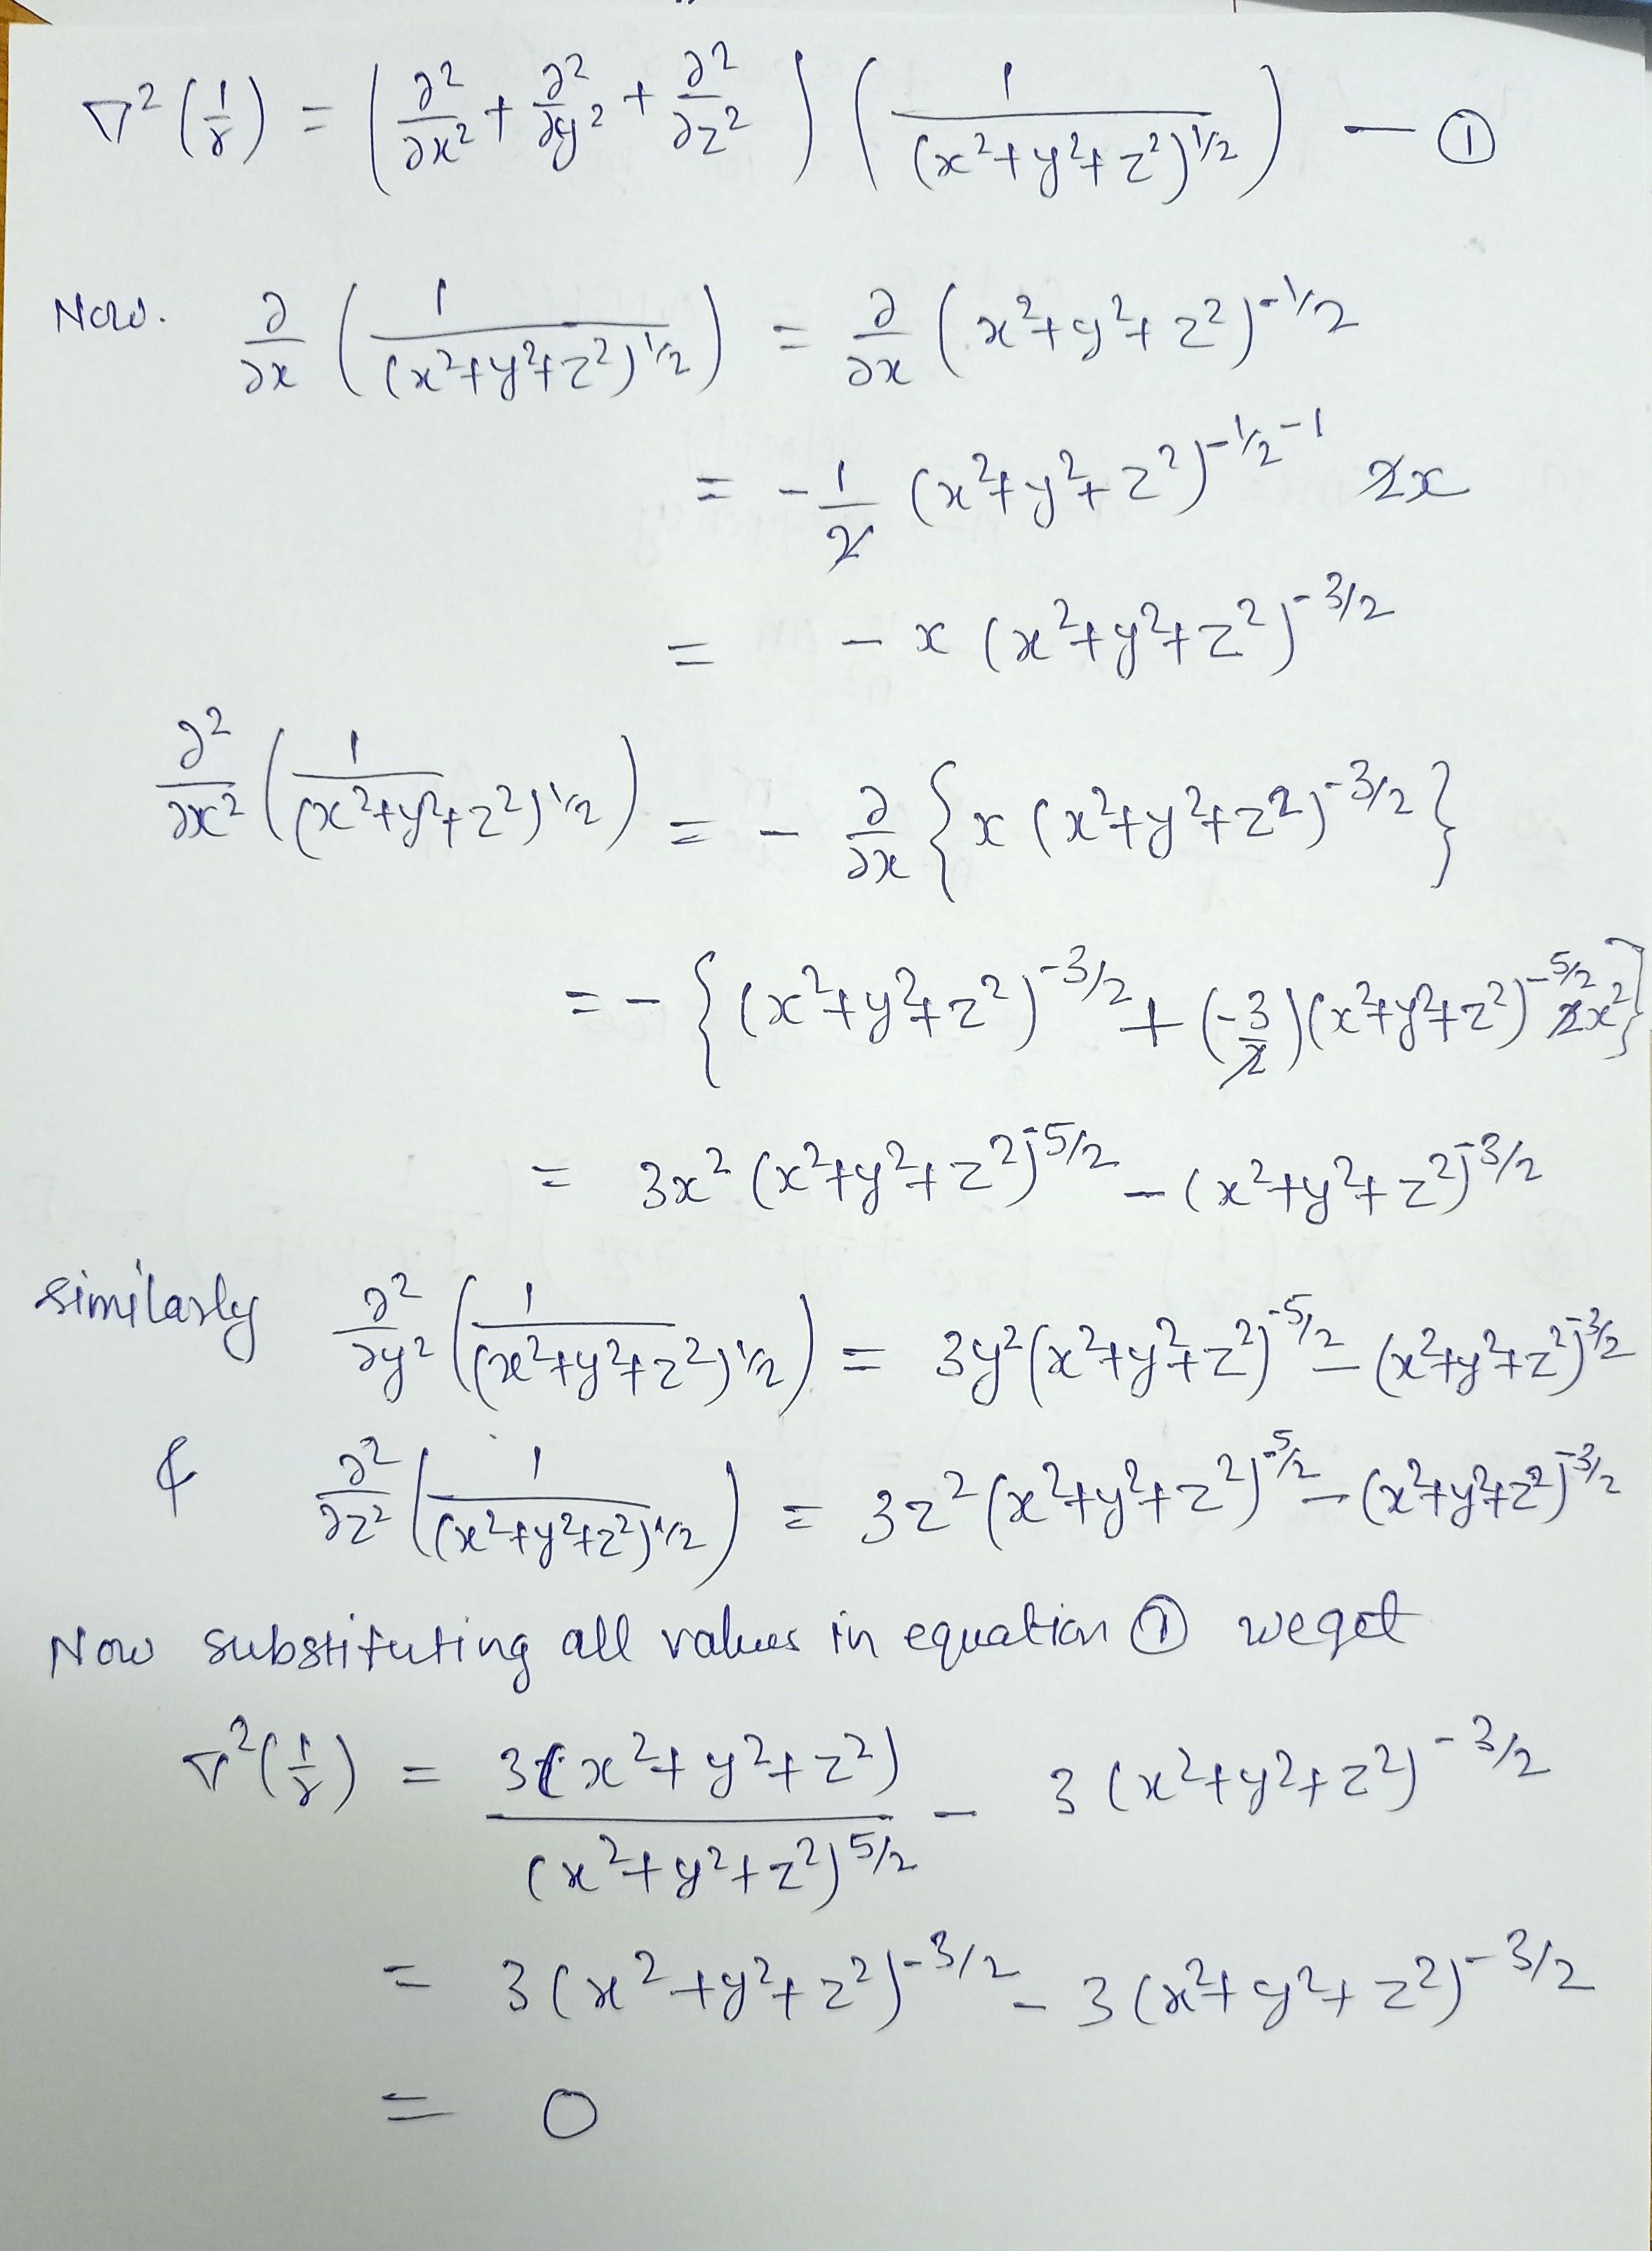 ∇²(1/r) = (∂²/∂x² + ∂²/∂y² + ∂²/∂z²) (1/(x²+y²+z²)^1/2) — ①
Now. ∂/∂x (1/(x²+y²+z²)^1/2) = ∂/∂x (x²+y²+z²)^-1/2
= -1/2 (x²+y²+z²)^-1/2-1 2x
= - x (x²+y²+z²)^-3/2
∂²/∂x² (1/(x²+y²+z²)^1/2) = - ∂/∂x {x (x²+y²+z²)^-3/2}
= - {(x²+y²+z²)^-3/2 + (-3/2)(x²+y²+z²)^-5/2 2x²}
= 3x² (x²+y²+z²)^-5/2 - (x²+y²+z²)^-3/2
similarly ∂²/∂y² (1/(x²+y²+z²)^1/2) = 3y²(x²+y²+z²)^-5/2 - (x²+y²+z²)^-3/2
& ∂²/∂z² (1/(x²+y²+z²)^1/2) = 3z²(x²+y²+z²)^-5/2 - (x²+y²+z²)^-3/2
Now substituting all values in equation ① we get
∇²(1/r) = 3(x²+y²+z²)/(x²+y²+z²)^5/2 - 3 (x²+y²+z²)^-3/2
= 3(x²+y²+z²)^-3/2 - 3(x²+y²+z²)^-3/2
= 0